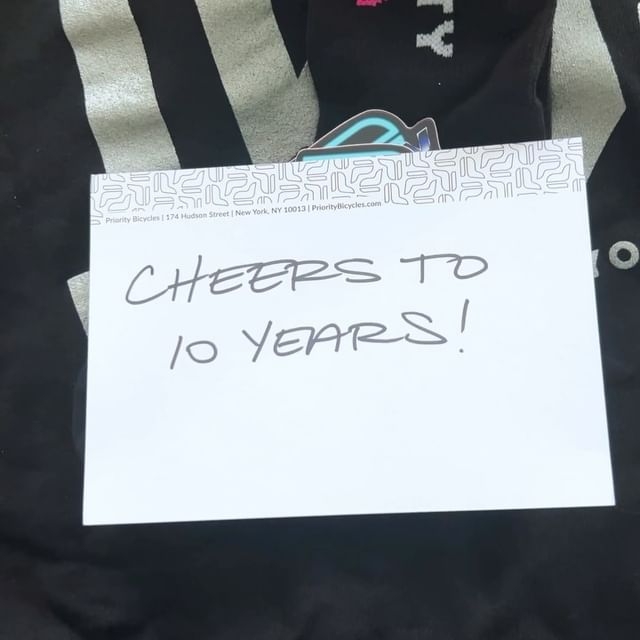 TY
Priority Bicycles | 174 Hudson Street | New York, NY 10013 | PriorityBicycles.com
O
CHEERS TO
10 YEARS!